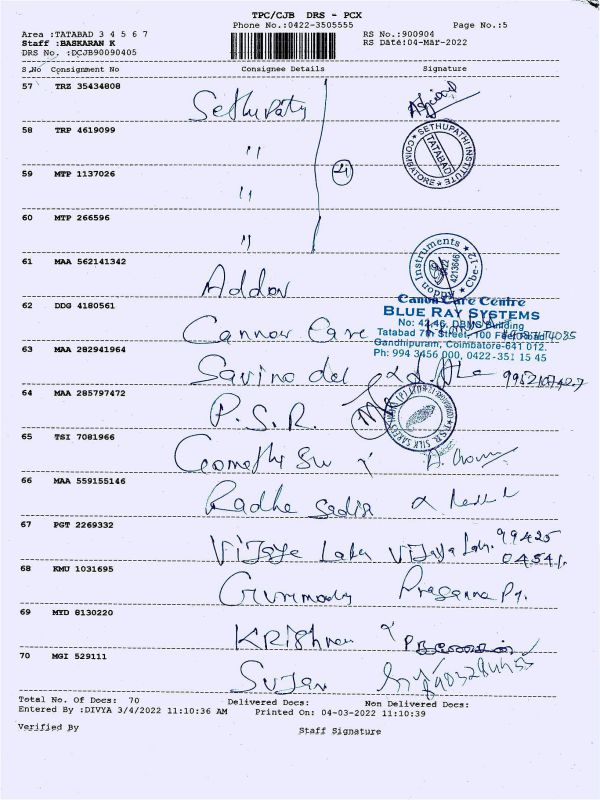 TPC/CJB DRS - PCX
Phone No.:0422-3505555 Page No.:5
Area :TATABAD 3 4 5 6 7 RS No.:900904
Staff :BASKARAN K RS Date:04-Mar-2022
DRS No. :DCJB90090405
S.No Consignment No Consignee Details Signature
57 TRZ 35434808
Sethupathy
58 TRP 4619099
"
SETHUPATHI INSTITUTE
TATABAD
COIMBATORE
59 MTP 1137026
"
60 MTP 266596
"
61 MAA 562141342
Addon
Addon Instruments
Cbe-12
62 DDG 4180561
Cannon Care
Canon Care Centre
BLUE RAY SYSTEMS
No: 42-46, DBMS Building
Tatabad 7th Street, 100 Feet Road
Gandhipuram, Coimbatore-641 012.
Ph: 994 3456 000, 0422-351 15 45
63 MAA 282941964
64 MAA 285797472
P.S.R.
P.S.R. SILK SAREES
65 TSI 7081966
66 MAA 559155146
Radha
67 PGT 2269332
Vijaya Lab Vijaya Lab. 99425
04541.
68 KMU 1031695
Prasanna
69 MTD 8130220
Krishna
70 MGI 529111
Sujan
Total No. Of Docs: 70 Delivered Docs: Non Delivered Docs:
Entered By :DIVYA 3/4/2022 11:10:36 AM Printed On: 04-03-2022 11:10:39
Verified By Staff Signature